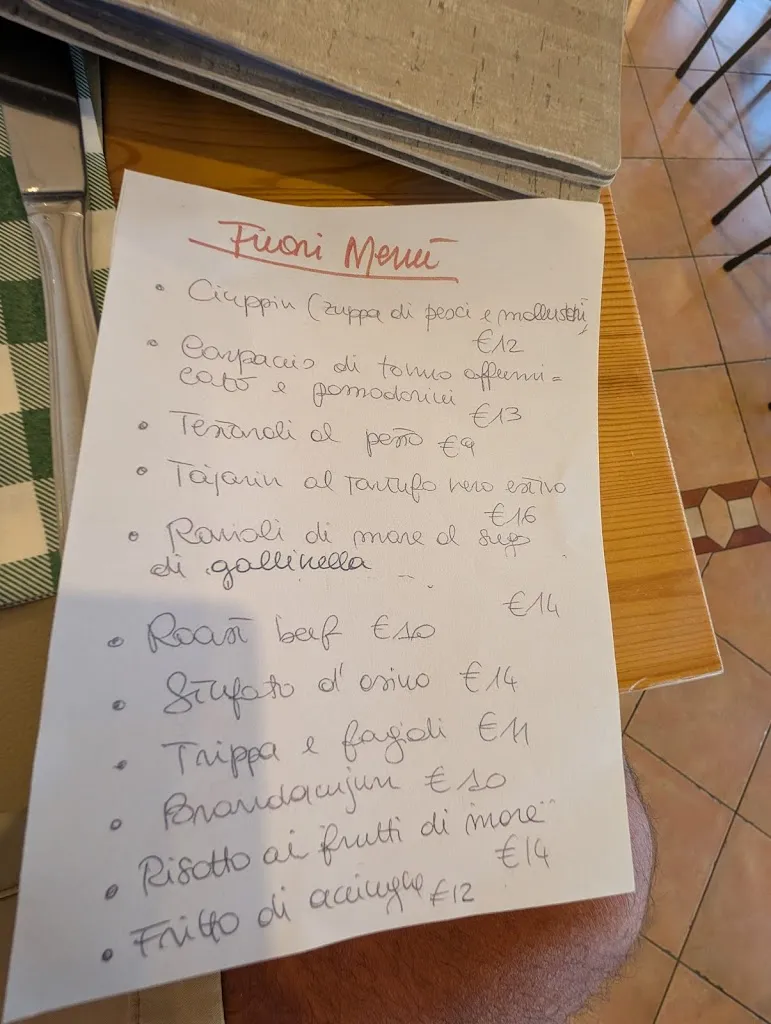 Fuori Menù
• Ciuppin (zuppa di pesci e molluschi)
€12
• Carpaccio di tonno affumi=
cato e pomodorini
€13
• Testaroli al pesto €9
• Tajarin al tartufo nero estivo
€16
• Ravioli di mare al sugo
di gallinella
€14
• Roast beef €10
• Stufato d'asino €14
• Trippa e fagioli €11
• Brandacujun €10
• Risotto ai frutti di mare
€14
• Fritto di acciughe €12